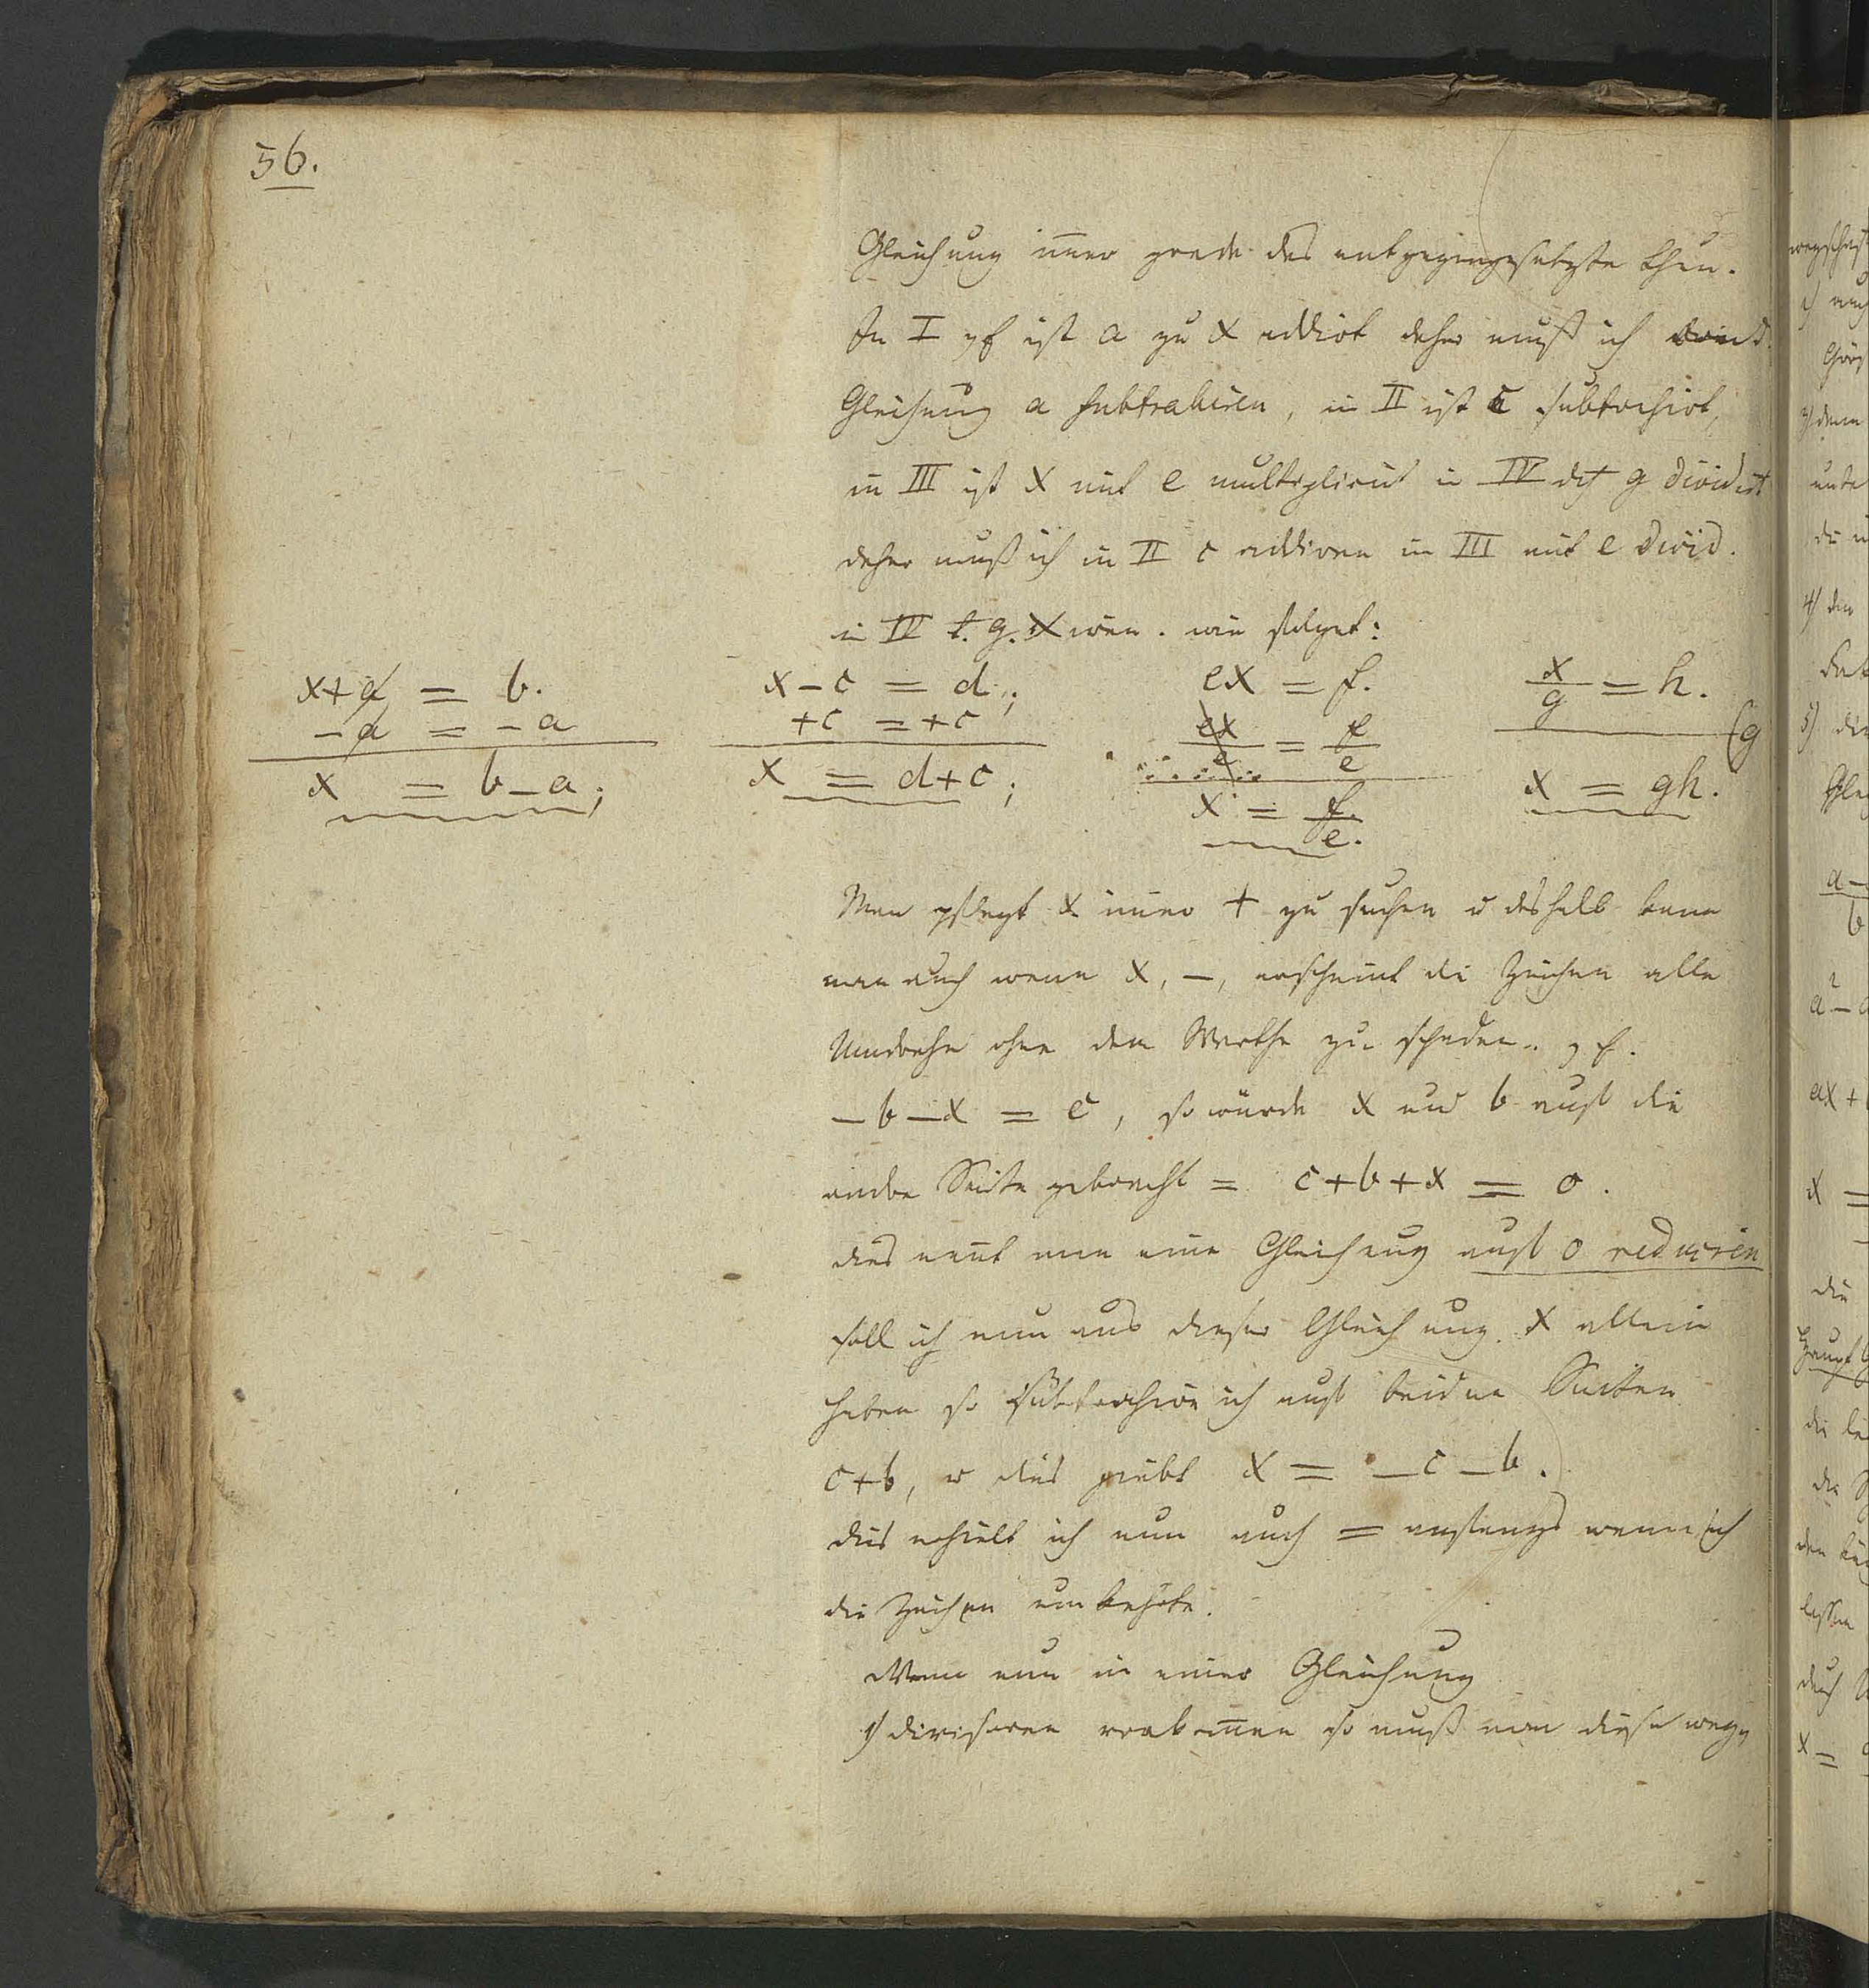 56.
Gleichung im̅er grade das entgegengesetzte thun.
In I z f ist a zu x addirt daher muß ich
Gleichung a subtrahiren, in II ist c subtrahirt,
in III ist x mit e multiplicirt in IV dch g dividirt
daher muß ich in II c addiren in III mit e divid.
in IV t. g. wie folget:
x+a = b.
-a = -a
x = b-a;
x-c = d;
+c = +c
x = d+c;
ex = f.
ex/e = f/e
x = f/e.
x/g = h.
(g
x = gh.
Man pflegt x im̅er + zu suchen u deshalb kann
man auch wenn x, -, erscheint die Zeichen alle
Umdrehn ohne dem Werthe zu schaden. z f.
-b-x = c, so würde x und b auf die
andre Seite gebracht = c+b+x = 0.
dies nen̅t man eine Gleichung auf 0 reduciren
soll ich nun aus dieser Gleichung x allein
haben so subtrahire ich auf beiden Seiten
c+b, u dies giebt x = -c-b.
dies erhielt ich nun auch = anfangs wenn ich
die Zeichen umkehrte.
Wenn nun in einer Gleichung
1) divisoren vorkom̅en so muß man diese weg